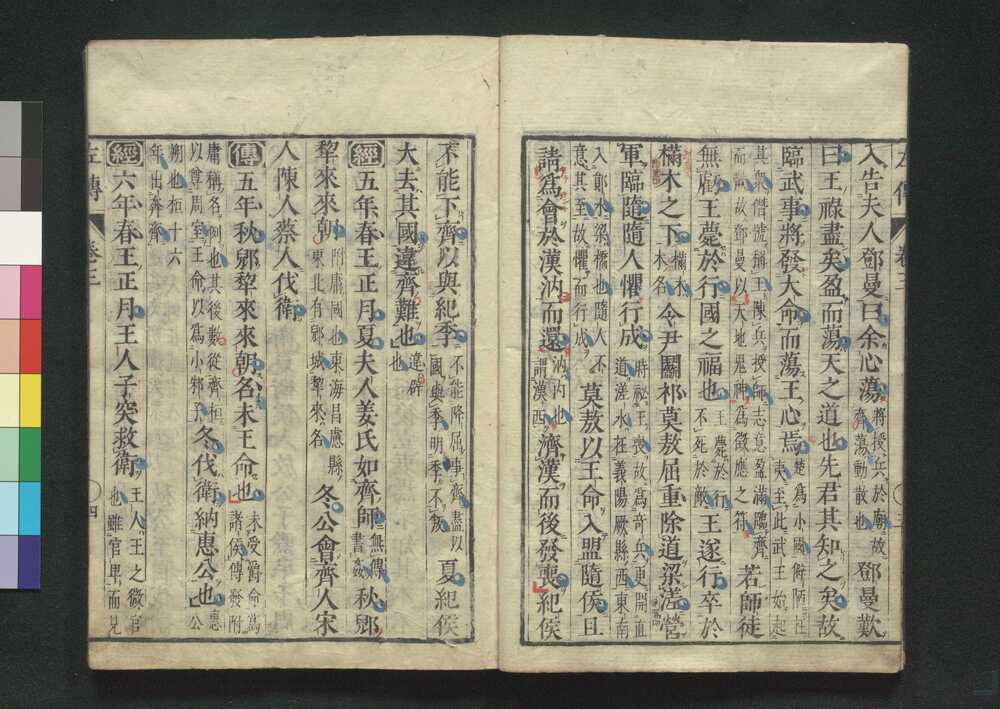 入告夫人鄧曼曰余心蕩將授兵於廟故齊蕩動散也鄧曼歎
曰王祿盡矣盈而蕩天之道也先君其知之矣故
臨武事將發大命而蕩王心焉楚爲小國僻陋在夷至此武王始起
其衆僭號稱王陳兵授師志意盈滿臨齊而散故鄧曼以天地鬼神爲徵應之符若師徒
無虧王薨於行國之福也王薨於行不死於敵王遂行卒於
樠木之下樠木木名令尹鬬祁莫敖屈重除道梁溠營
軍臨隨隨人懼行成時祕王喪故爲奇兵更開直道溠水在義陽厥縣西東南
入鄖水梁橋也隨人不意其至故懼而行成莫敖以王命入盟隨侯且
請爲會於漢汭而還汭內也謂漢西濟漢而後發喪紀侯
不能下齊以與紀季不能降屈事齊盡以國與季明季不叛夏紀侯
大去其國違齊難也違辟也
經五年春王正月夏夫人姜氏如齊師無傳書姦秋郳
犂來來朝附庸國也東海昌慮縣東北有郳城犂來名冬公會齊人宋
人陳人蔡人伐衛
傳五年秋郳犂來來朝名未王命也未受爵命爲諸侯傳發附
庸稱名例也其後數從齊桓以尊周室王命以爲小邾子冬伐衛納惠公也惠公
朔也桓十六年出奔齊
經六年春王正月王人子突救衛王人王之微官也雖官卑而見
左傳 卷三 四